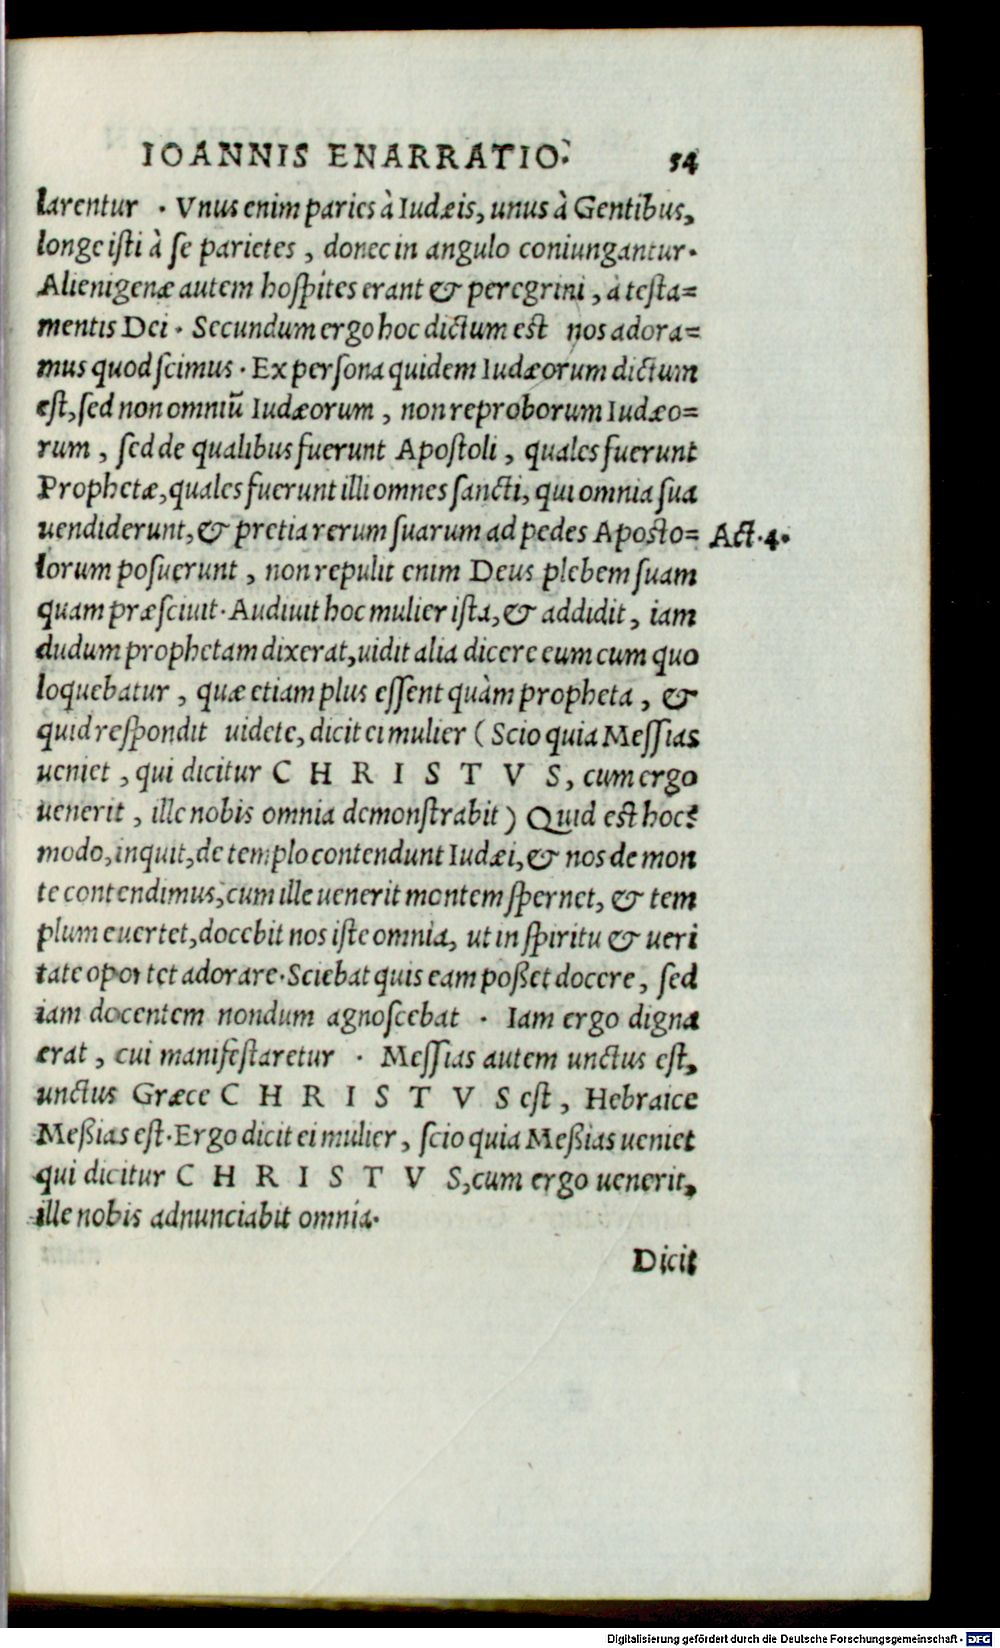 IOANNIS ENARRATIO. 54
larentur . Vnus enim paries à Iudæis, unus à Gentibus,
longe isti à se parietes , donec in angulo coniungantur.
Alienigenæ autem hospites erant & peregrini , à testa=
mentis Dei . Secundum ergo hoc dictum est nos adora=
mus quod scimus . Ex persona quidem Iudæorum dictum
est, sed non omniũ Iudæorum , non reproborum Iudæo=
rum , sed de qualibus fuerunt Apostoli , quales fuerunt
Prophetæ, quales fuerunt illi omnes sancti, qui omnia sua
uendiderunt, & pretia rerum suarum ad pedes Aposto= Act.4.
lorum posuerunt , non repulit enim Deus plebem suam
quam præsciuit. Audiuit hoc mulier ista, & addidit , iam
dudum prophetam dixerat, uidit alia dicere eum cum quo
loquebatur , quæ etiam plus essent quàm propheta , &
quid respondit uidete, dicit ei mulier ( Scio quia Messias
ueniet , qui dicitur C H R I S T V S, cum ergo
uenerit , ille nobis omnia demonstrabit ) Quid est hoc?
modo, inquit, de templo contendunt Iudæi, & nos de mon
te contendimus, cum ille uenerit montem spernet, & tem
plum euertet, docebit nos iste omnia, ut in spiritu & ueri
tate oportet adorare. Sciebat quis eam poßet docere , sed
iam docentem nondum agnoscebat . Iam ergo digna
erat , cui manifestaretur . Messias autem unctus est,
unctus Græce C H R I S T V S est , Hebraice
Meßias est. Ergo dicit ei mulier , scio quia Meßias ueniet
qui dicitur C H R I S T V S, cum ergo uenerit,
ille nobis adnunciabit omnia.
Dicit
Digitalisierung gefördert durch die Deutsche Forschungsgemeinschaft - DFG